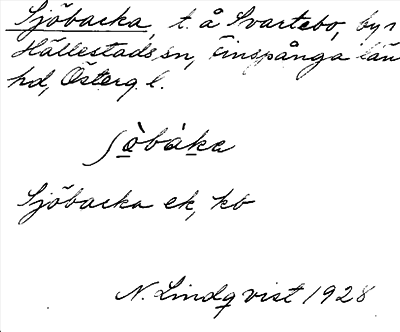 Sjöbacka, t. å Svartebo, by i
Hällestads sn, Finspånga län
hd, Österg. l.
ʃò̱bàḵa
Sjöbacka ek, kb
N. Lindqvist 1928